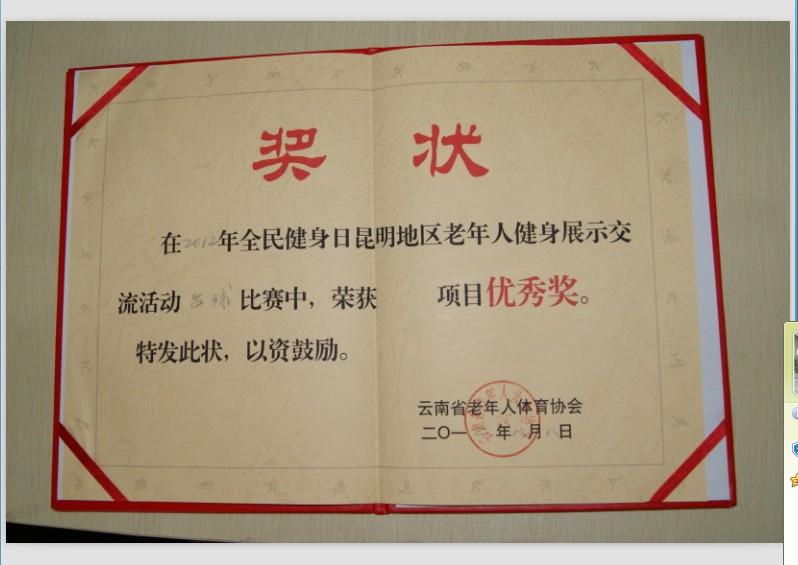 奖 状
在2012年全民健身日昆明地区老年人健身展示交
流活动 台球 比赛中，荣获 项目优秀奖。
特发此状，以资鼓励。
云南省老年人体育协会
二〇一 年 月八日